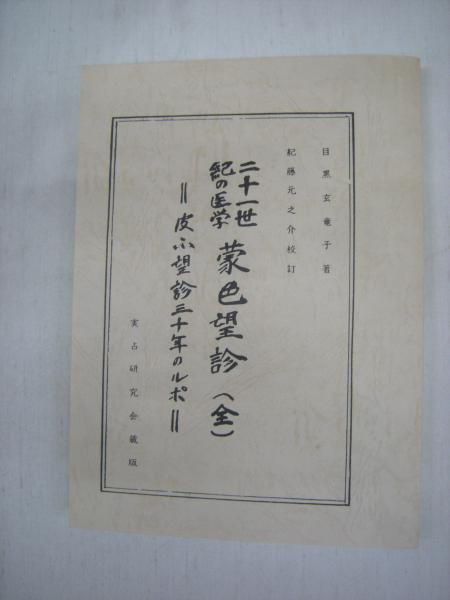 目黒玄竜子著
紀藤元之介校訂
二十一世
紀の医学
蒙色望診(全)
=皮ふ望診三十年のルポ=
実占研究会蔵版